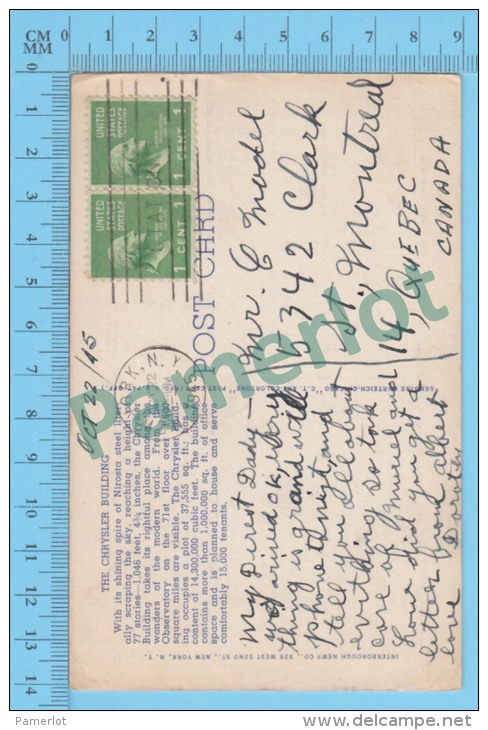 CM
MM
0 1 2 3 4 5 6 7 8 9
0
1
2
3
4
5
6
7
8
9
10
11
12
13
14
UNITED
STATES
POSTAGE
1 CENT 1
UNITED
STATES
POSTAGE
1 CENT 1
POST CARD
Oct 22/45
N. Y.
THE CHRYSLER BUILDING
With its shining spire of Nirosta steel liter-
ally scraping the sky, reaching a height of
77 stories—1,046 feet, 4¾ inches, the Chrysler
Building takes its rightful place among the
wonders of the modern world. From the
Observatory on the 71st floor over
square miles are visible. The Chrysler Build-
ing occupies a plot of 37,555 sq. ft.; has a
content of 14,300,000 cubic feet. The building
contains more than 1,000,000 sq. ft. of office
space and is planned to house and serve
comfortably 15,000 tenants.
My Direst Dady—
arived ok
thing is grand will
Phone to night and
tell you all
so take
care of and
how did you get a
letter from Albert
love
Mr. C Model
5342 Clark
St, Montreal
14, QUEBEC
CANADA
GENUINE CURTEICH-CHICAGO "C.T. ART-COLORTONE" POST CARD
INTERBOROUGH NEWS CO., 525 WEST 52ND ST., NEW YORK, N. Y.
pamerlot
Pamerlot